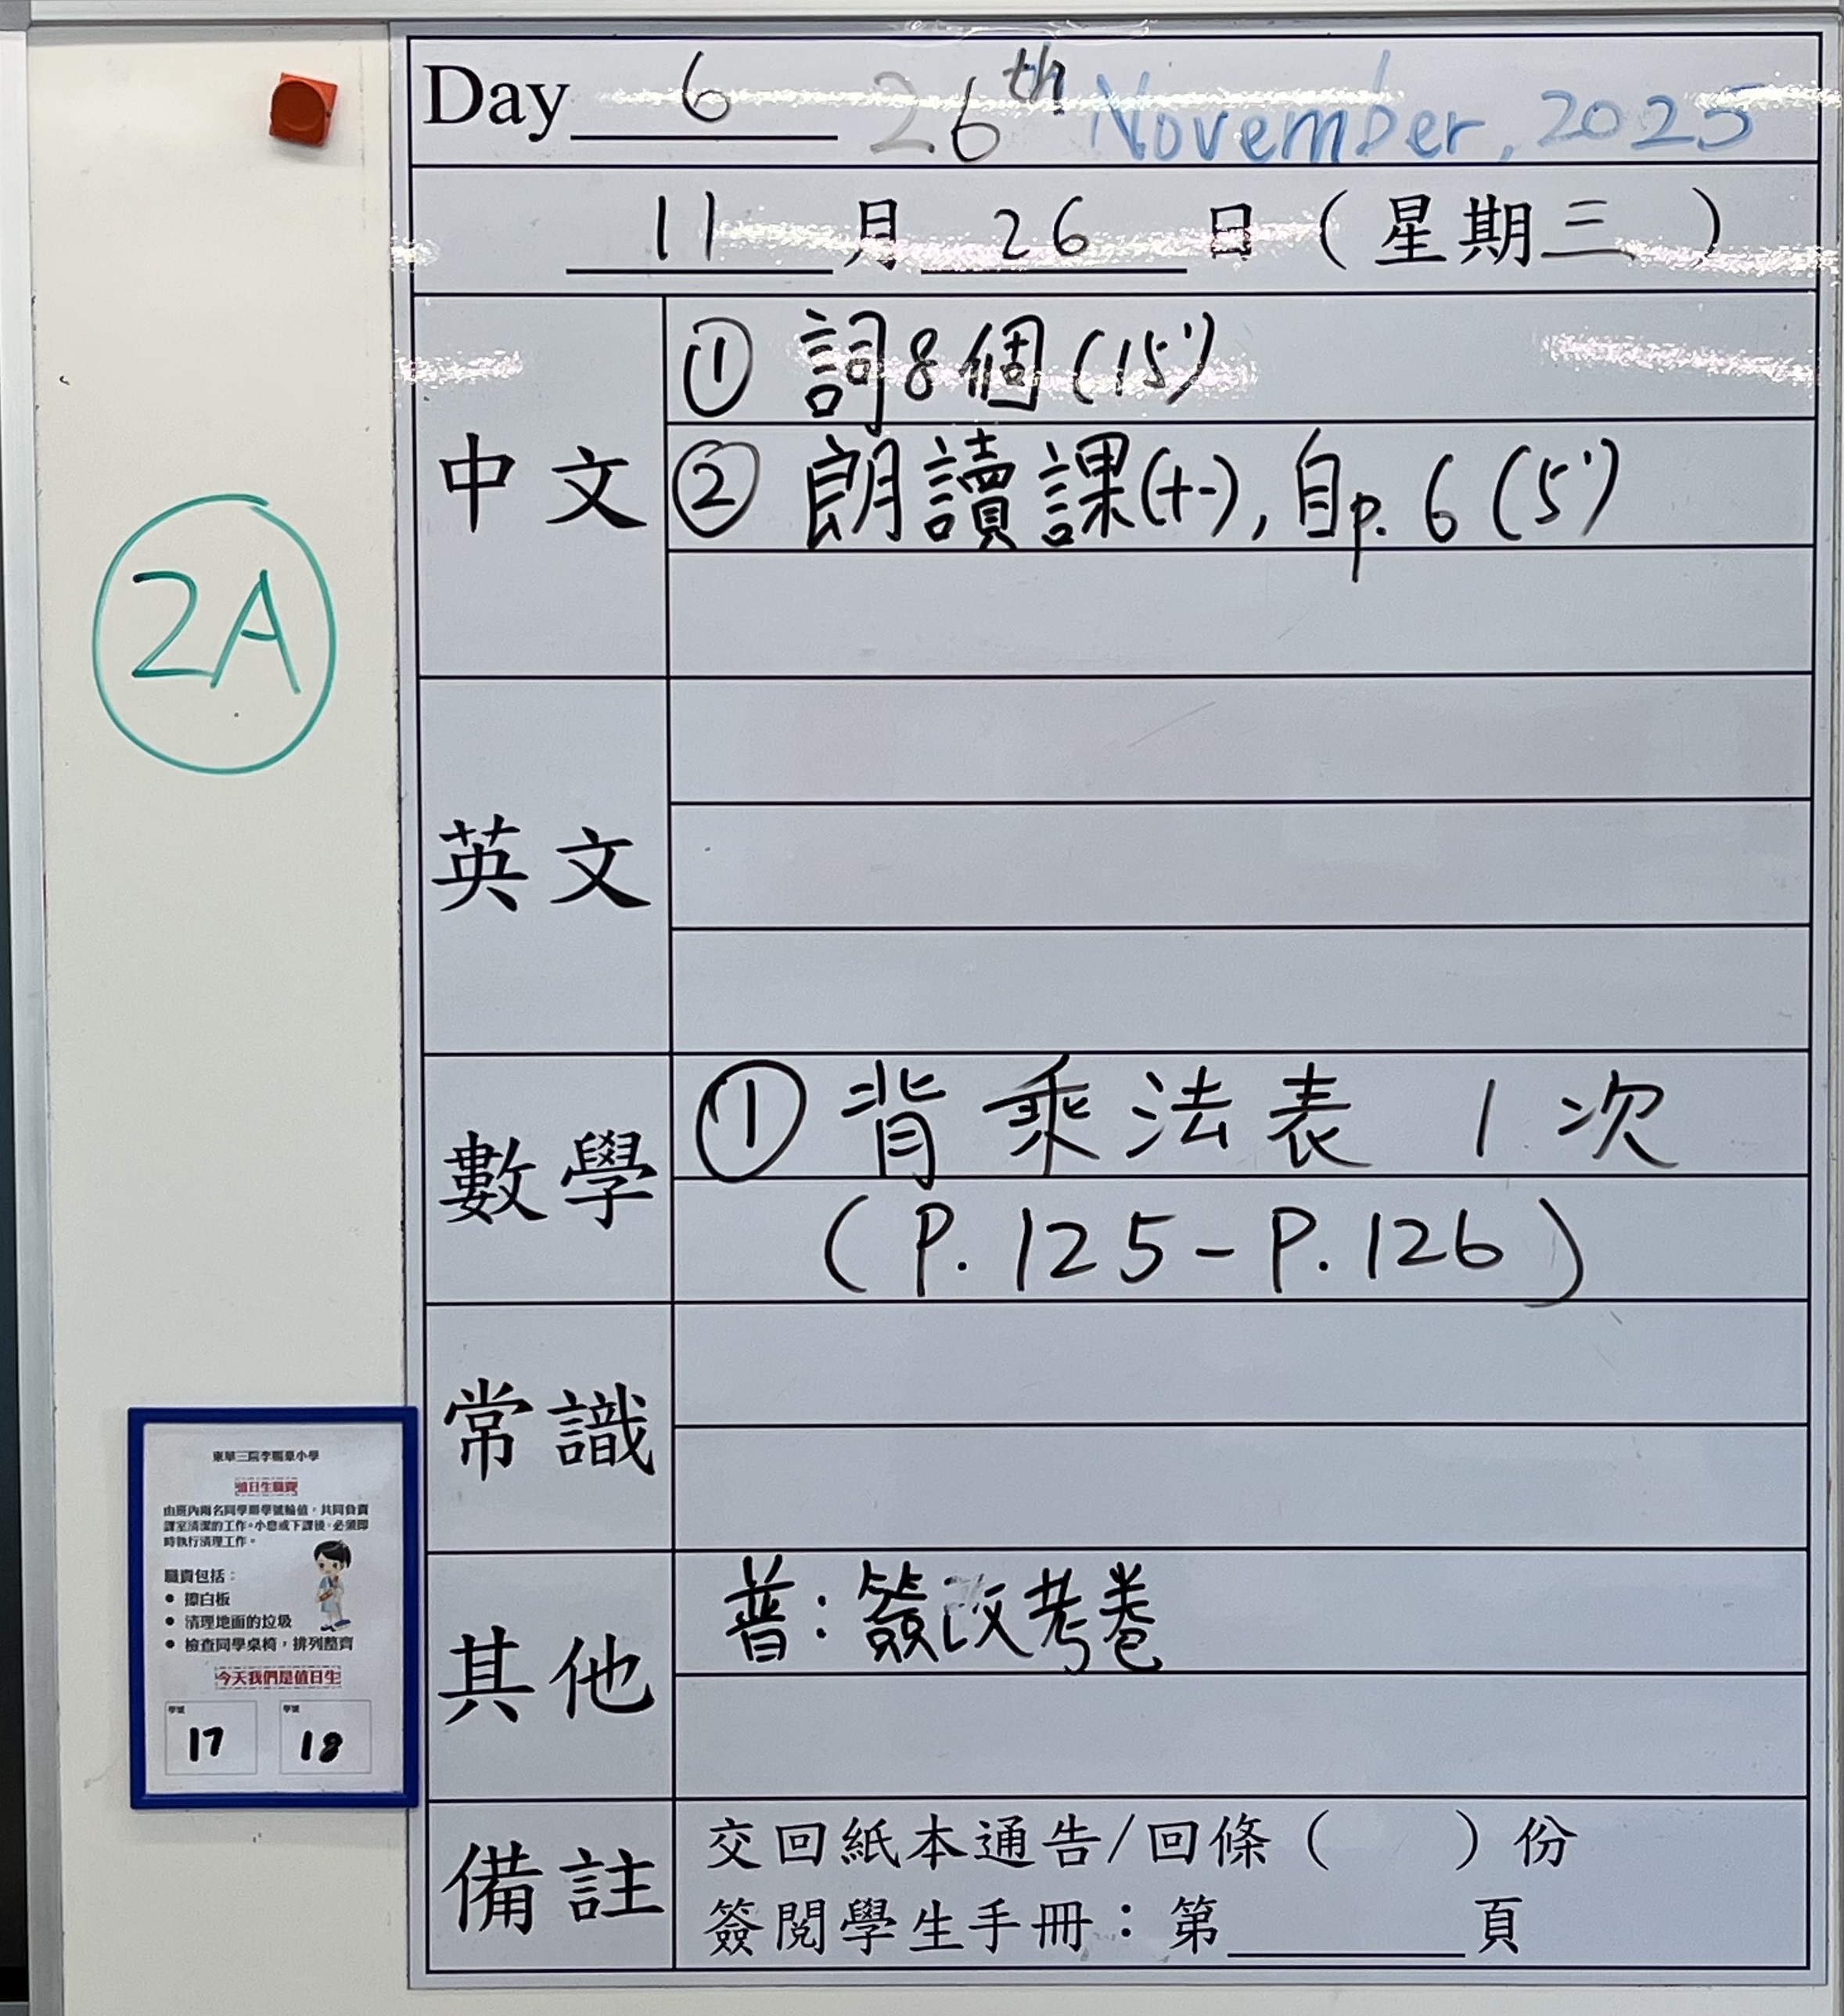 Day 6 26th November, 2025
11月26日（星期三）
中文
① 詞8個(15')
② 朗讀課(十一), 自p. 6 (5')
2A
英文
數學
① 背乘法表 1次
(P. 125 - P. 126)
常識
其他
普：簽改考卷
備註
交回紙本通告/回條（ ）份
簽閱學生手冊：第 頁
值日生職責
由班內兩名同學順學號輪值，共同負責
課室清潔的工作。小息或下課後，必須即
時執行清理工作。
職責包括：
● 擦白板
● 清理地面的垃圾
● 檢查同學桌椅，排列整齊
今天我們是值日生
學號 學號
17 18